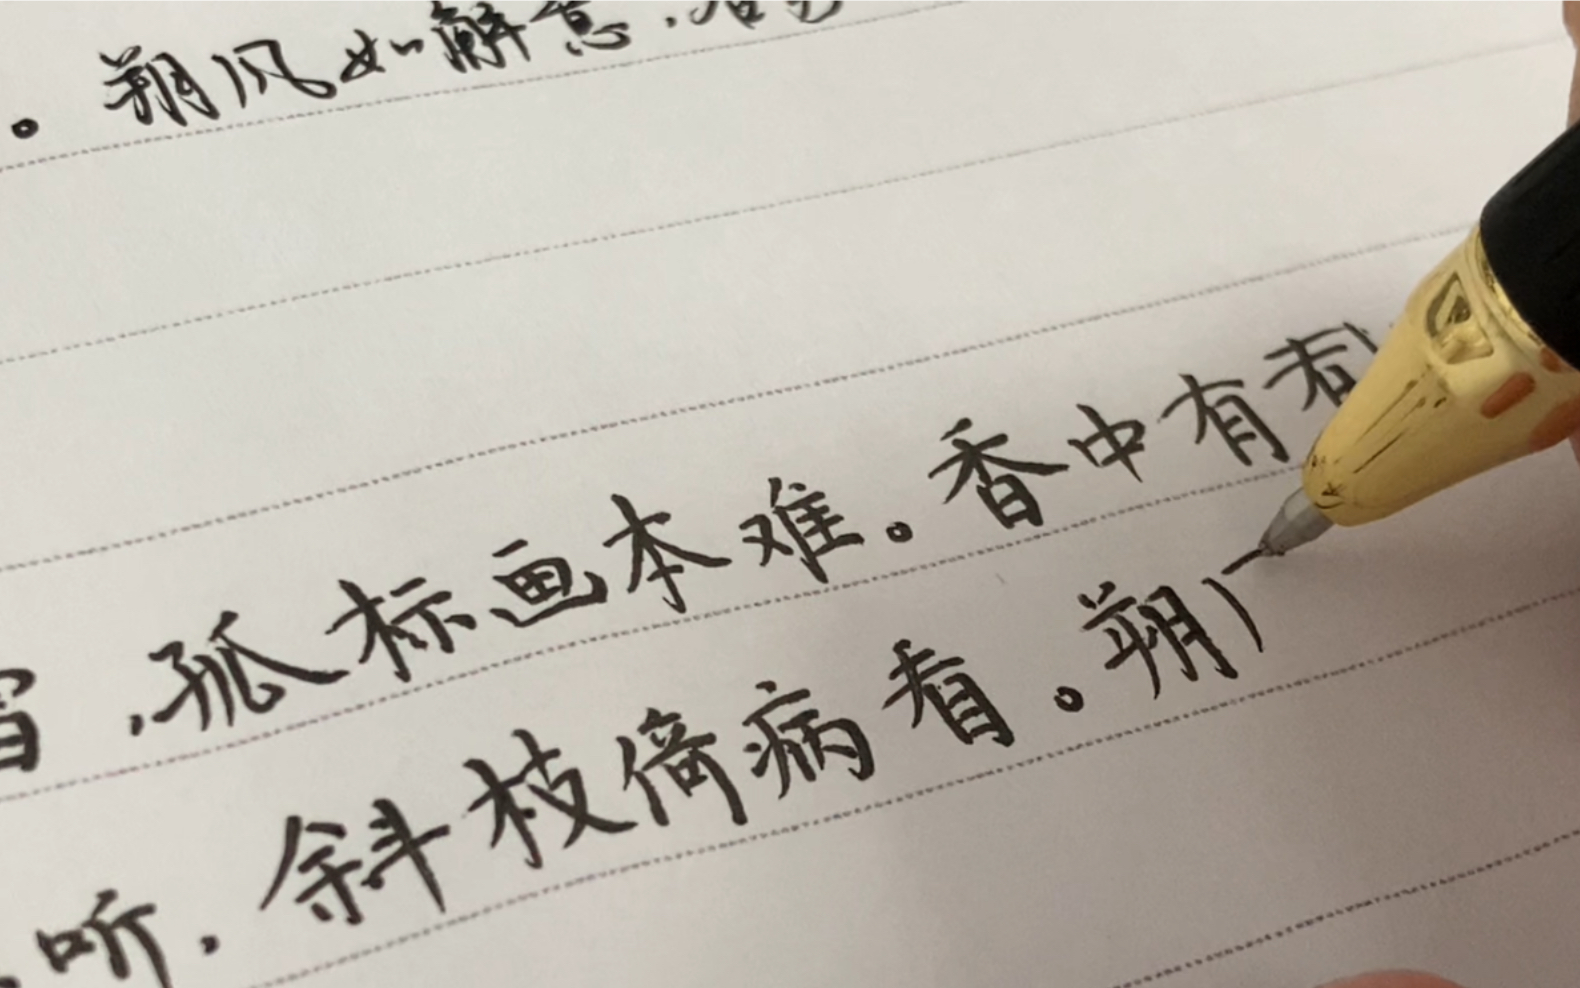 。朔风如解意，
，孤标画本难。香中有
听，斜枝倚病看。朔